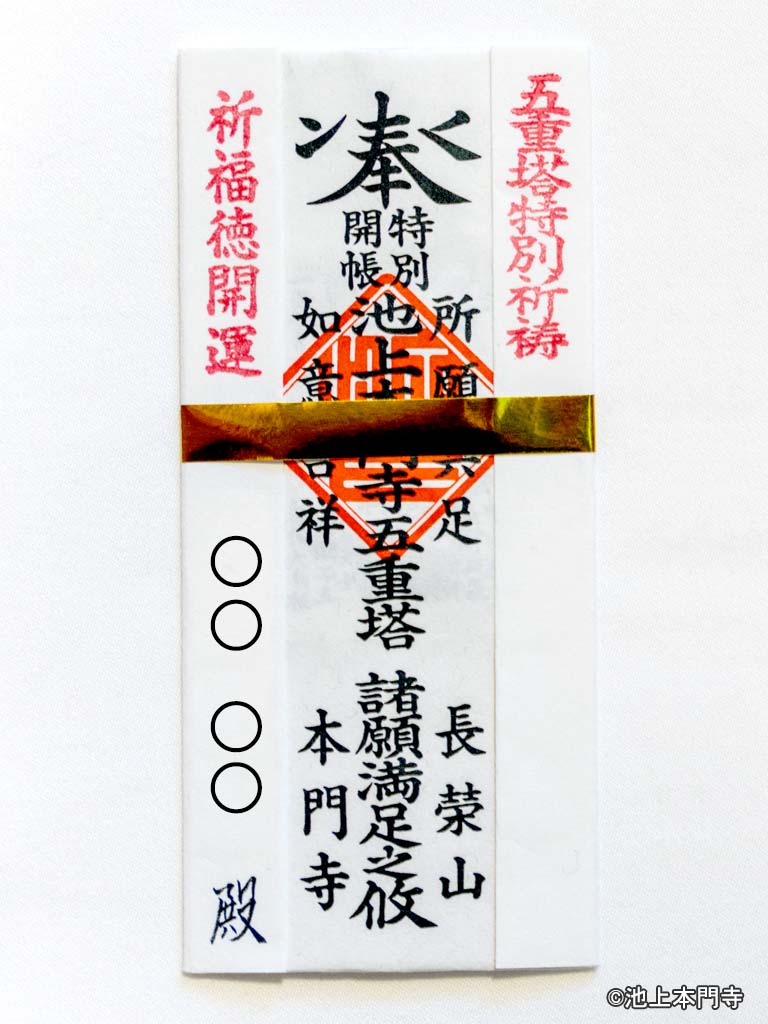 五重塔特別祈祷
奉
特別
開帳
所願具足
池上本門寺五重塔
如意吉祥
長榮山
諸願満足之攸
本門寺
祈福徳開運
○○ ○○ 殿
©池上本門寺